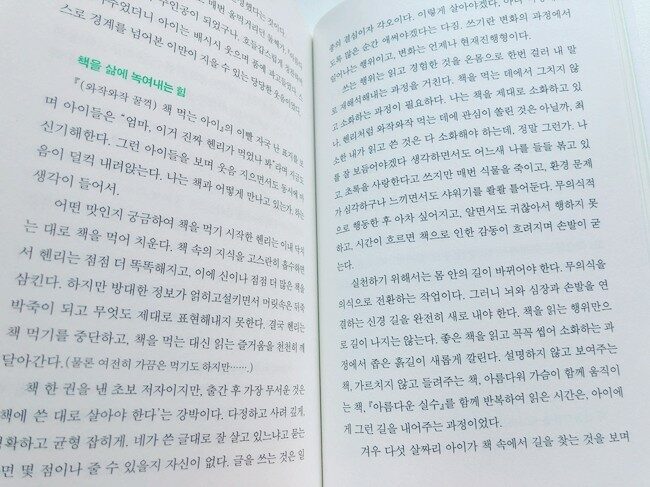 매번 움찔거리면
주인공이 되었구나, 호들갑스럽게
하였더니 아이는 배시시 웃으며 품에
스로 경계를 넘어본 이만이 지을 수 있는 당당한 웃음이었다.
책을 삶에 녹여내는 힘
『(와작와작 꿀꺽) 책 먹는 아이』의 이빨 자국 난 표지를 보
며 아이들은 "엄마, 이거 진짜 헨리가 먹었나 봐"라며
신기해한다. 그런 아이들을 보며 웃음 지으면서도 동시에
음이 덜컥 내려앉는다. 나는 책과 어떻게 만나고 있는가, 하는
생각이 들어서.
어떤 맛인지 궁금하여 책을 먹기 시작한 헨리는 이내 닥치
는 대로 책을 먹어 치운다. 책 속의 지식을 고스란히 흡수하면
서 헨리는 점점 더 똑똑해지고, 이에 신이나 점점 더 많은 책을
삼킨다. 하지만 방대한 정보가 얽히고설키면서 머릿속은 뒤죽
박죽이 되고 무엇도 제대로 표현해내지 못한다. 결국 헨리는
책 먹기를 중단하고, 책을 먹는 대신 읽는 즐거움을 천천히 깨
달아간다.(물론 여전히 가끔은 먹기도 하지만……)
책 한 권을 낸 초보 저자이지만, 출간 후 가장 무서운 것은
책에 쓴 대로 살아야 한다'는 강박이다. 다정하고 사려 깊게,
확하고 균형 잡히게, 네가 쓴 글대로 잘 살고 있느냐고 묻는
면 몇 점이나 줄 수 있을지 자신이 없다. 글을 쓰는 것은 일
종의 결심이자 각오이다. 이렇게 살아야겠다. 아니
도록 많은 순간 애써야겠다는 다짐. 쓰기란 변화의 과정에서
일어나는 행위이고, 변화는 언제나 현재진행형이다.
쓰는 행위는 읽고 경험한 것을 온몸으로 한번 걸러 내 말
로 재해석해내는 과정을 거친다. 책을 먹는 데에서 그치지 않
고 소화하는 과정이 필요하다. 나는 책을 제대로 소화하고 있
나, 헨리처럼 와작와작 먹는 데에 관심이 쏠린 것은 아닐까, 최
소한 내가 읽고 쓴 것은 다 소화해야 하는데, 정말 그런가. 나
를 잘 보듬어야겠다 생각하면서도 어느새 나를 들들 볶고 있
고 초록을 사랑한다고 쓰지만 매번 식물을 죽이고, 환경 문제
가 심각하구나 느끼면서도 샤워기를 콸콸 틀어둔다. 무의식적
으로 행동한 후 아차 싶어지고, 알면서도 귀찮아서 행하지 못
하고, 시간이 흐르면 책으로 인한 감동이 흐려지며 손발이 굳
는다.
실천하기 위해서는 몸 안의 길이 바뀌어야 한다. 무의식을
의식으로 전환하는 작업이다. 그러니 뇌와 심장과 손발을 연
결하는 신경 길을 완전히 새로 내야 한다. 책을 읽는 행위만으
로 길이 나지는 않는다. 좋은 책을 읽고 꼭꼭 씹어 소화하는 과
정에서 좁은 흙길이 새롭게 깔린다. 설명하지 않고 보여주는
책, 가르치지 않고 들려주는 책, 아름다워 가슴이 함께 움직이
는 책, 『아름다운 실수』를 함께 반복하여 읽은 시간은, 아이에
게 그런 길을 내어주는 과정이었다.
겨우 다섯 살짜리 아이가 책 속에서 길을 찾는 것을 보며